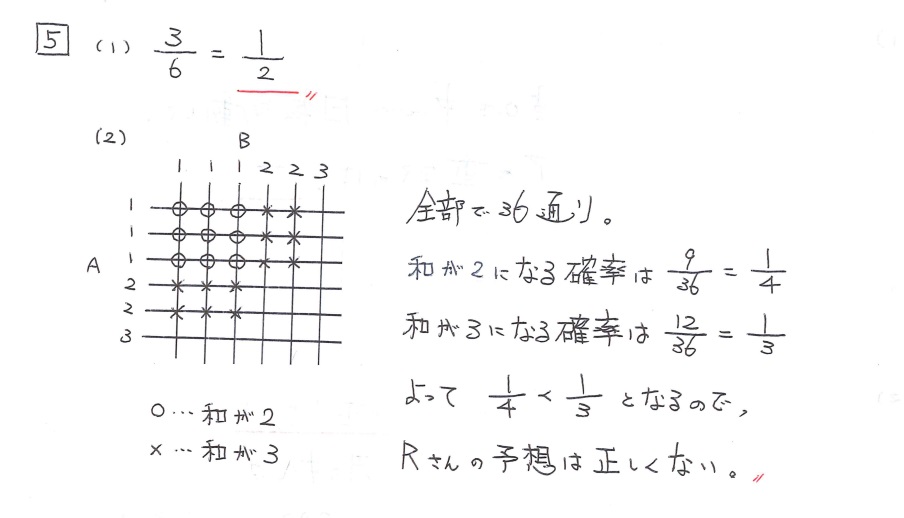 5 (1) 3/6 = 1/2 〃
(2)
B
1 1 1 2 2 3
A
1
1
1
2
2
3
○…和が2
×…和が3
全部で36通り。
和が2になる確率は 9/36 = 1/4
和が3になる確率は 12/36 = 1/3
よって 1/4 < 1/3 となるので,
Rさんの予想は正しくない。〃